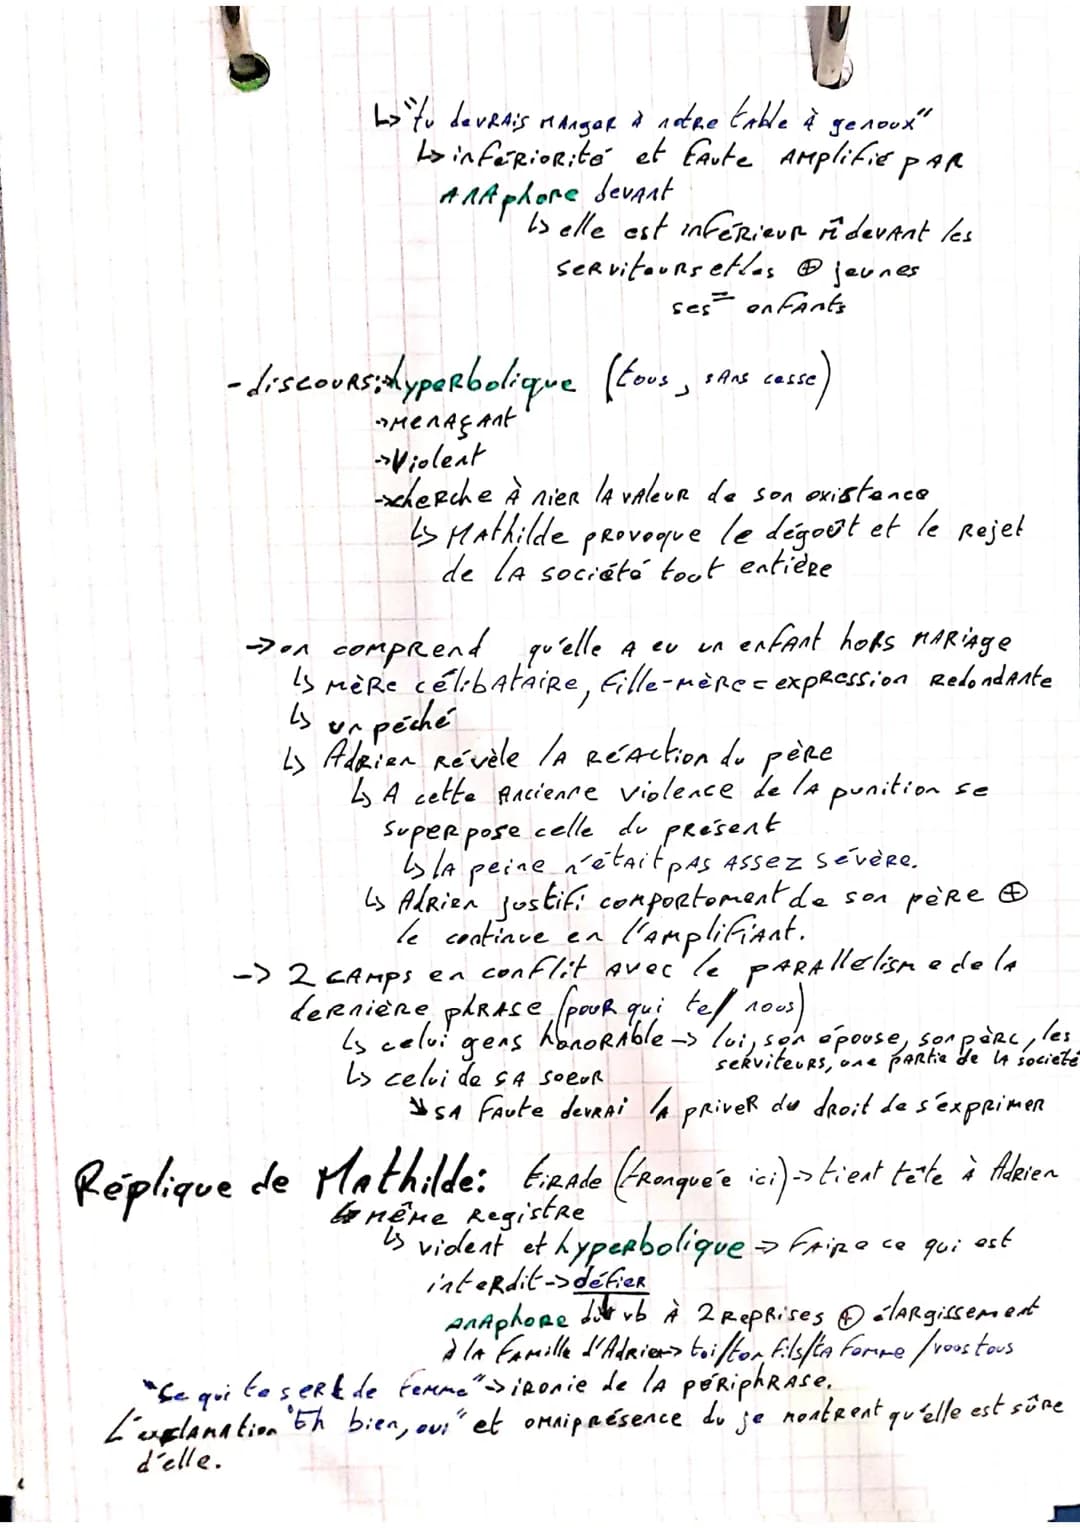 ↳"tu devrais manger à notre table à genoux"
↳ infériorité et faute amplifié par
anaphore devant
↳ elle est inférieur m̂ devant les
serviteurs et les ⊕ jeunes
ses = enfants
- discours: hyperbolique (tous, sans cesse)
→ menaçant
→ Violent
→ cherche à nier la valeur de son existence
↳ Mathilde provoque le dégoût et le rejet
de la société tout entière
→ on comprend qu'elle a eu un enfant hors mariage
↳ mère célibataire, fille-mère = expression redondante
↳ un péché
↳ Adrien révèle la réaction du père
↳ A cette ancienne violence de la punition se
superpose celle du présent
↳ la peine n'était pas assez sévère.
↳ Adrien justifi comportement de son père ⊕
le continue en l'amplifiant.
-> 2 camps en conflit avec le parallélisme de la
dernière phrase (pour qui te/ nous)
↳ celui gens honorable → lui, son épouse, son père, les
serviteurs, une partie de la société
↳ celui de sa soeur
↘ sa faute devrai la priver du droit de s'exprimer
Réplique de Mathilde: tirade (tronquée ici) → tient tête à Adrien
↳ même registre
↳ violent et hyperbolique → faire ce qui est
interdit → défier
anaphore du vb à 2 reprises ⊕ élargissement
à la famille d'Adrien → toi/ton fils/ta femme /vous tous
"Ce qui te sert de femme" → ironie de la périphrase.
L'explanation "Eh bien, oui" et omniprésence du je montrent qu'elle est sûre
d'elle.